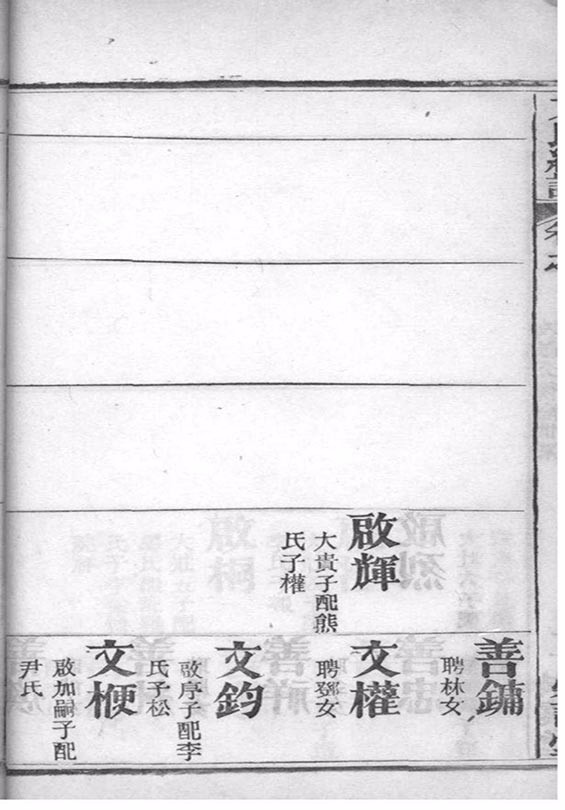 啟輝
大貴子配熊
氏子權
善鏞
聘林女
文權
聘鄧女
文鈞
啟序子配李
氏子松
文楩
啟加嗣子配
尹氏